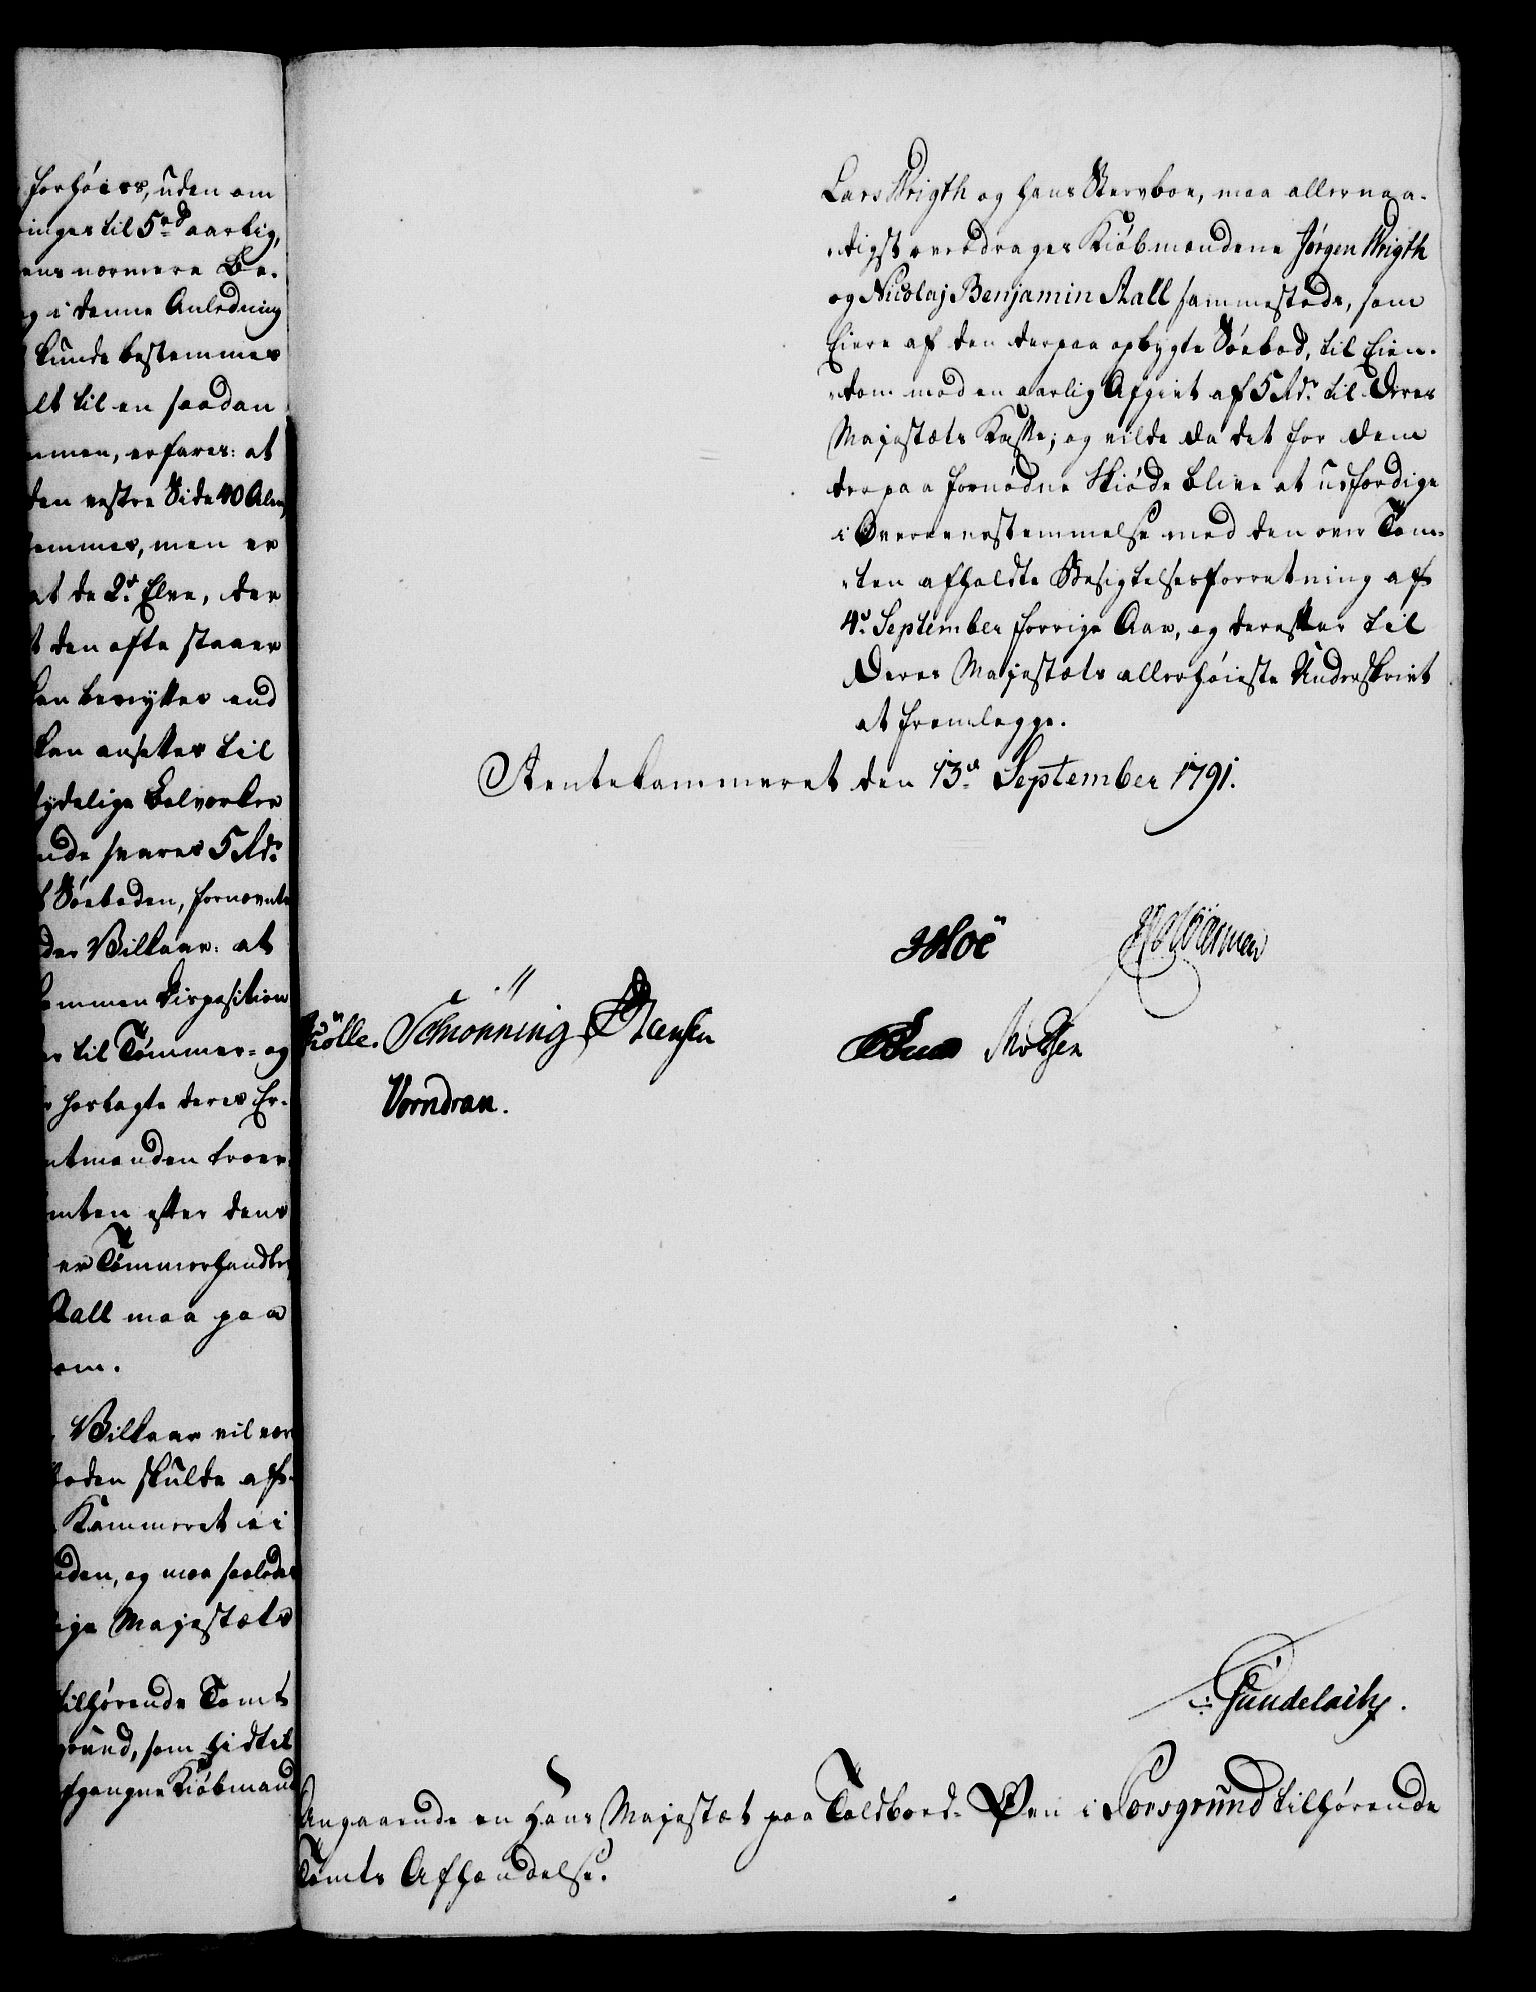 forhøies, uden om
inges til 5 rd aarlig,
ens nærmere Be-
g i denne Anledning
kunde bestemmes
lt til en saadan
mmen, erfares: at
den vestre Side 40 Alen,
emmes, men er
at de 2de Elve, der
t den ofte staaer
kan benyttes end
kan ansættes til
tydelige Bolværker
nde svares 5 Rdr
Søeboden, fornævnte
der Vilkaar: at
kommen Disposition
er til Tømmer- og
forlagte deres Er-
ntmanden troer
mten efter dens
er Tømmerhandler
Aall maa paa
om.
Vilkaar vil vær
boden skulde af-
Kammeret ei i
den, og maa saaledes
ige Majestæts
tilhørende Tomt
grund, som hidtil
fgangne Kiøbmand
Lars Wrigth og hans Stervboe, maa allernaa-
digst overdrages Kiöbmændene Jørgen Wrigth
og Nicolaj Benjamin Aall sammestæds, som
Eiere af den derpaa opbygte Søebod, til Eien-
dom mod en aarlig Afgivt af 5 Rdr til Deres
Majestæts Kasse; og vilde da det for dem
derpaa fornødne Skiøde blive at udfærdige
i Overeensstemmelse med den over Tom-
ten afholdte Besigtelsesforretning af
4de September forrige Aar, og derefter til
Deres Majestæts allerhøieste Underskrivt
at fremlegge.
Rentekammeret den 13de September 1791.
Hoë
Schønning Hansen
Vorndran.
Gundelach.
Angaaende en Hans Majestæt paa Toldboed-Øen i Porsgrund tilhørende
Tomts Afhændelse.